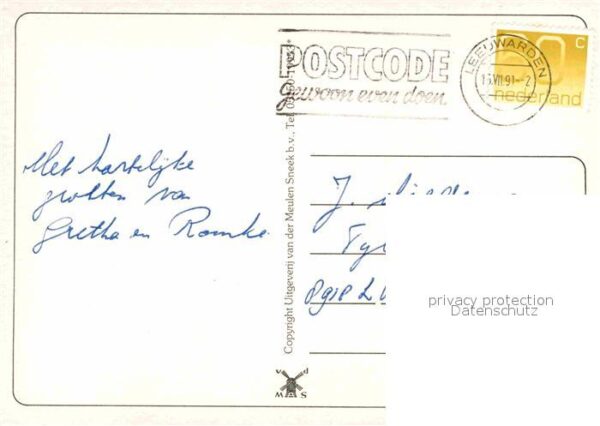 POSTCODE
gewoon even doen
LEEUWARDEN
15.VII.91.-2
60 c
nederland
Met hartelijke
groeten van
Gretha en Romke.
J.
8918 L
Copyright Uitgeverij van der Meulen Sneek b.v., Tel.
v d
M S
privacy protection
Datenschutz